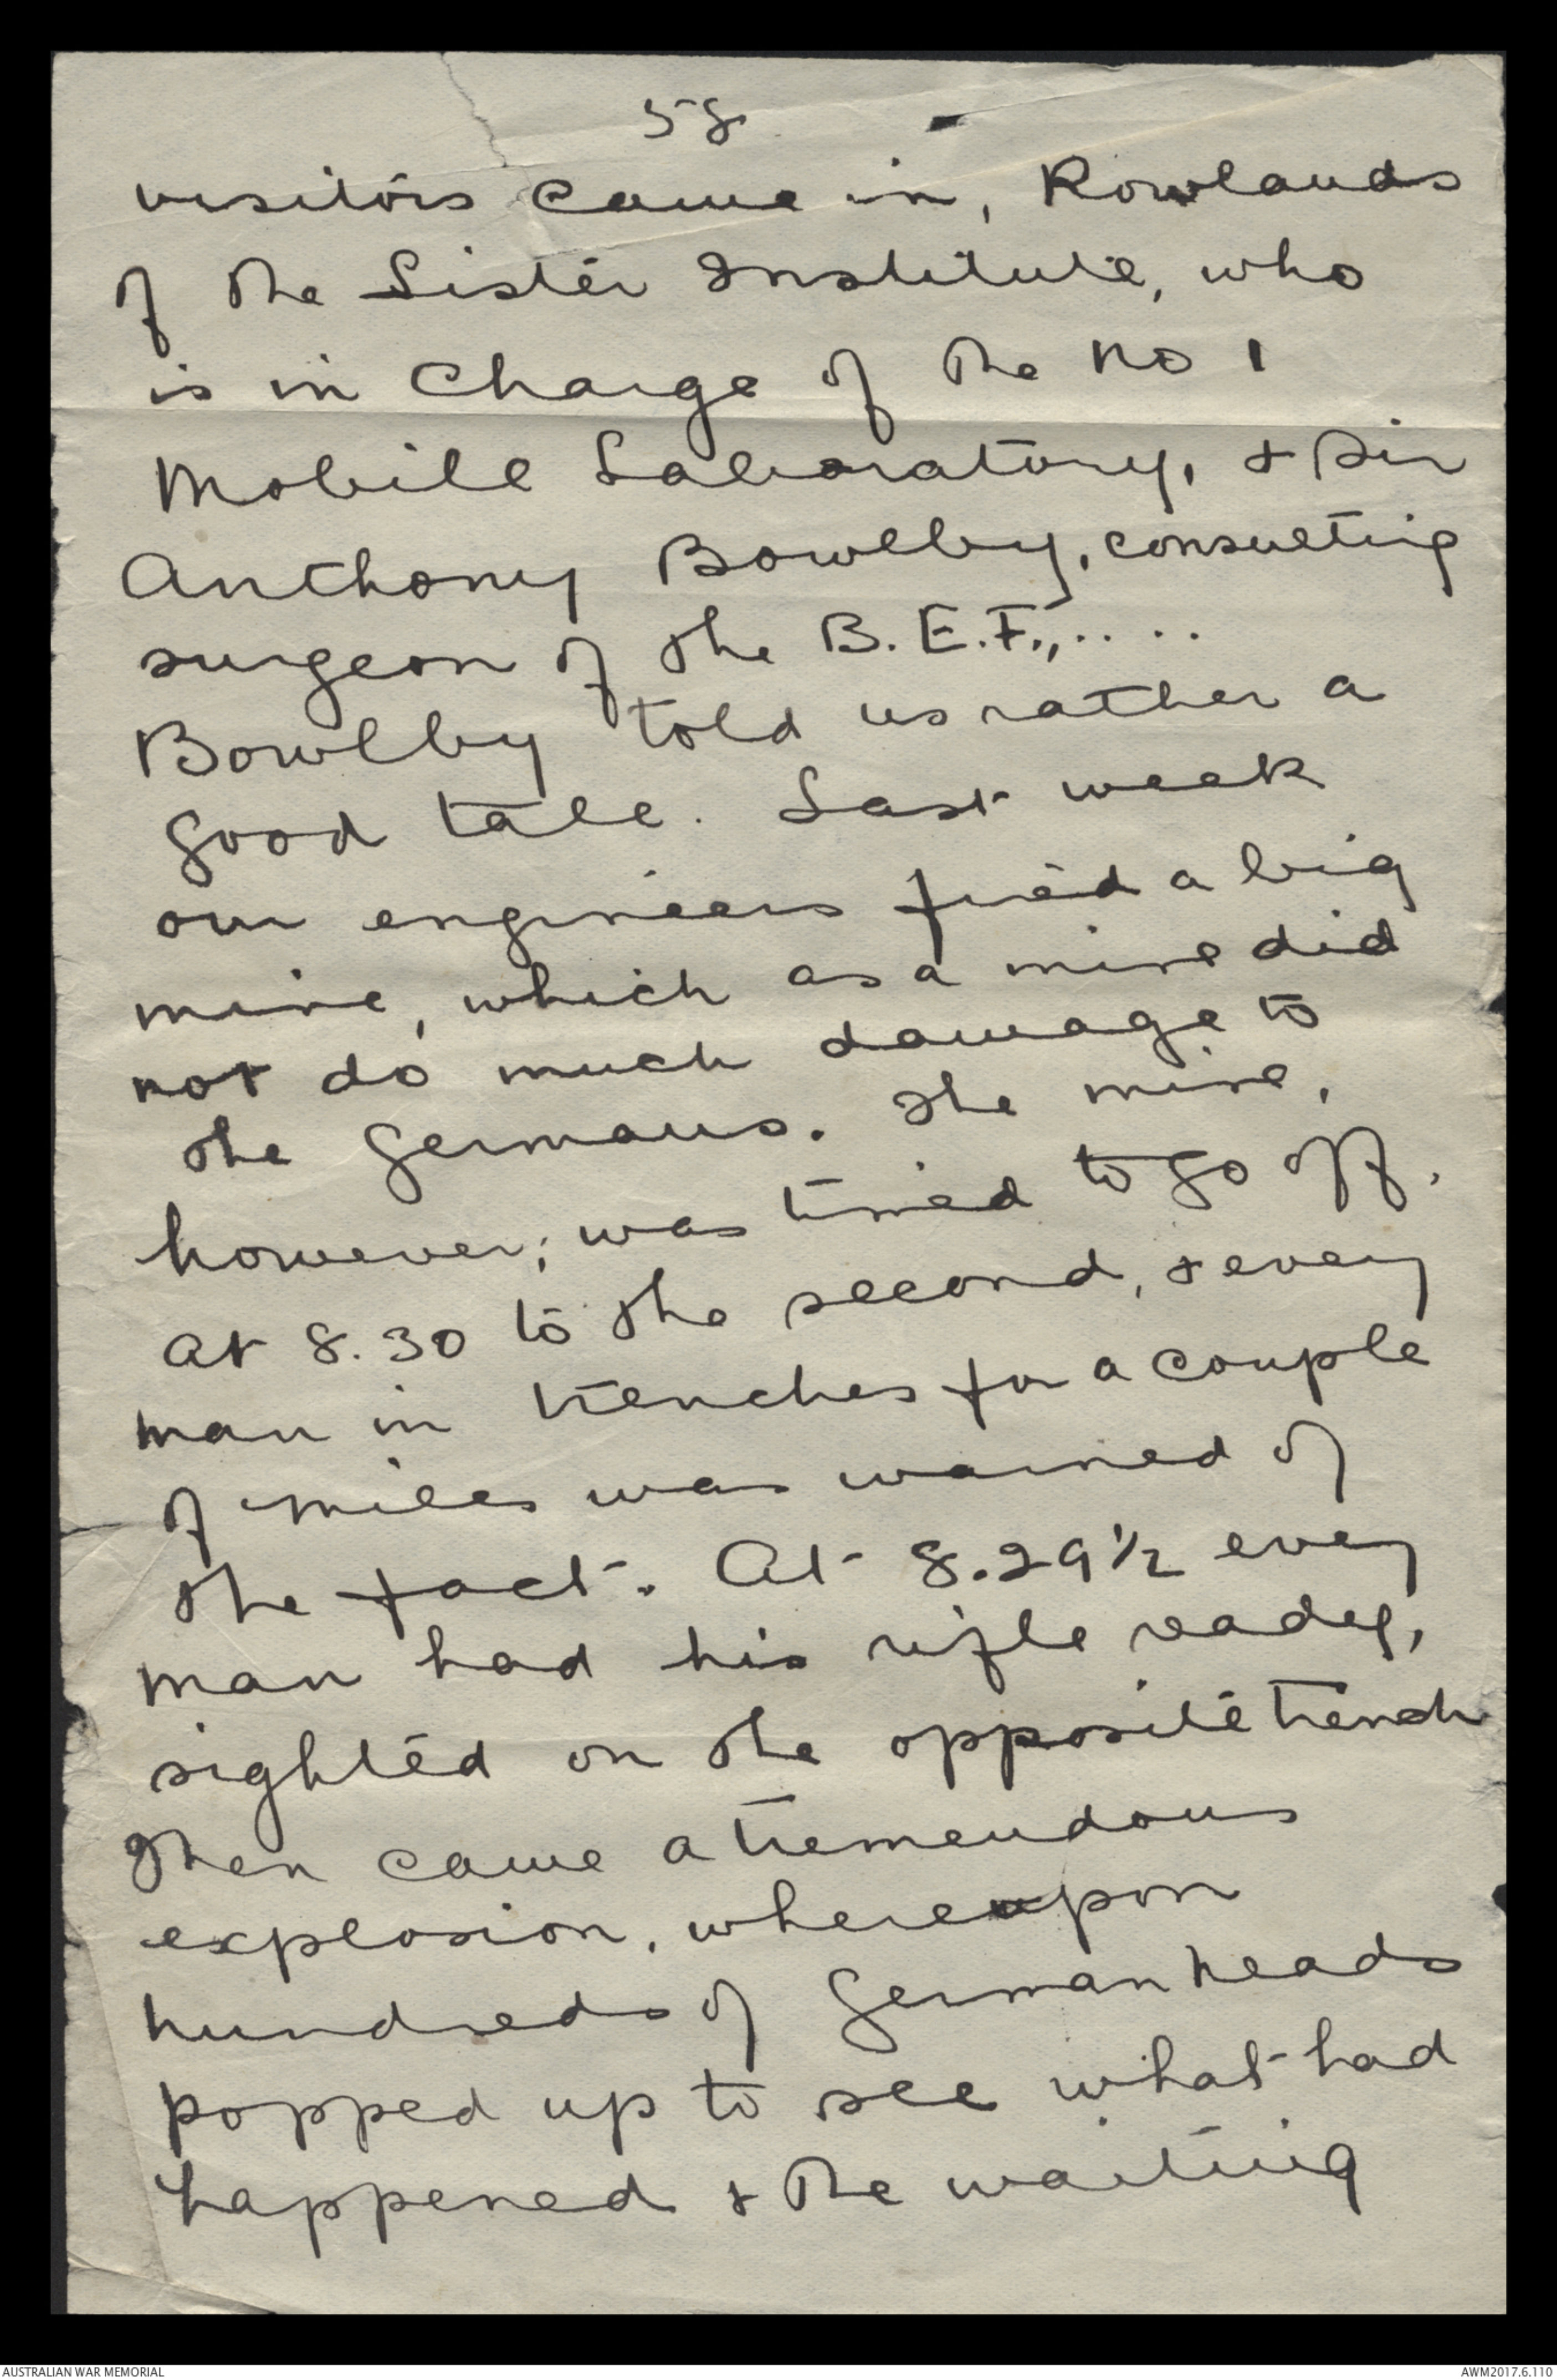 58.
visitors came in, Rowlands
of the Lister Institute, who
is in charge of the No 1
Mobile Laboratory, & Sir
Anthony Bowlby, consulting
surgeon of the B.E.F.,....
Bowlby told us rather a
good tale. Last week
our engineers fired a big
mine, which as a mine did
not do much damage to
the Germans. The mine,
however, was timed to go off,
at 8.30 to the second, & every
man in trenches for a couple
of miles was warned of
the fact. At 8.29½ every
man had his rifle ready,
sighted on the opposite trench
Then came a tremendous
explosion, whereupon
hundreds of German heads
popped up to see what had
happened & the waiting
AUSTRALIAN WAR MEMORIAL
AWM2017.6.110